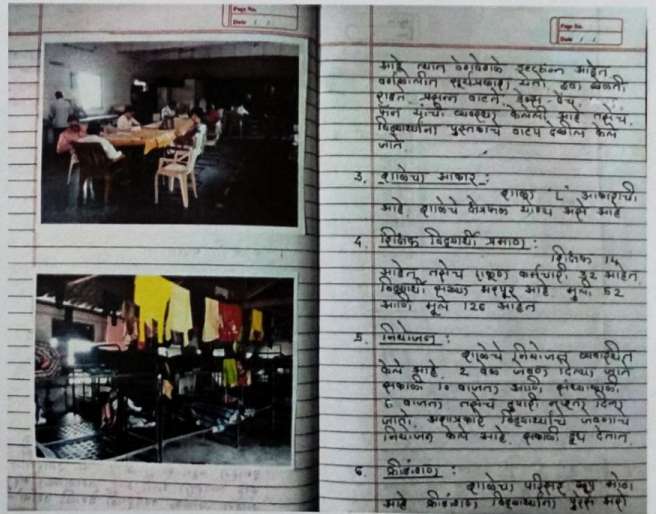 Page No.
Date / /
Page No.
Date / /
आहे त्यात वेगवेगळे आहेत
वर्गखोलीत सूर्यप्रकाश येतो. हवा खेळती
राहते. प्रसन्न वाटते. बेन्च,
यांची व्यवस्था केलेली आहे तसेच
विद्यार्थ्यांना पुस्तकाचे वाटप देखील केले
जाते.
3. शाळेचा आकार :
शाळा 'L' आकाराची
आहे. शाळेचे क्षेत्रफळ योग्य असे आहे
4. शिक्षक विद्यार्थी प्रमाण :
शिक्षक 14
आहेत तसेच एकूण कर्मचारी 32 आहेत.
विद्यार्थी संख्या भरपूर आहे. मुली 52
आणि मुले 126 आहेत
5. नियोजन :
शाळेचे नियोजन व्यवस्थित
केले आहे. 2 वेळ जेवण दिल्या जाते
सकाळी 10 वाजता आणि संध्याकाळी
6 वाजता तसेच दुपारी दिला
जातो. अशाप्रकारे विद्यार्थ्यांचे जेवणाचे
नियोजन केले आहे. सकाळी दूध देतात.
6. क्रीडांगण :
शाळेचा परिसर खूप मोठा
आहे क्रीडांगण विद्यार्थ्यांना पुरेसे असे